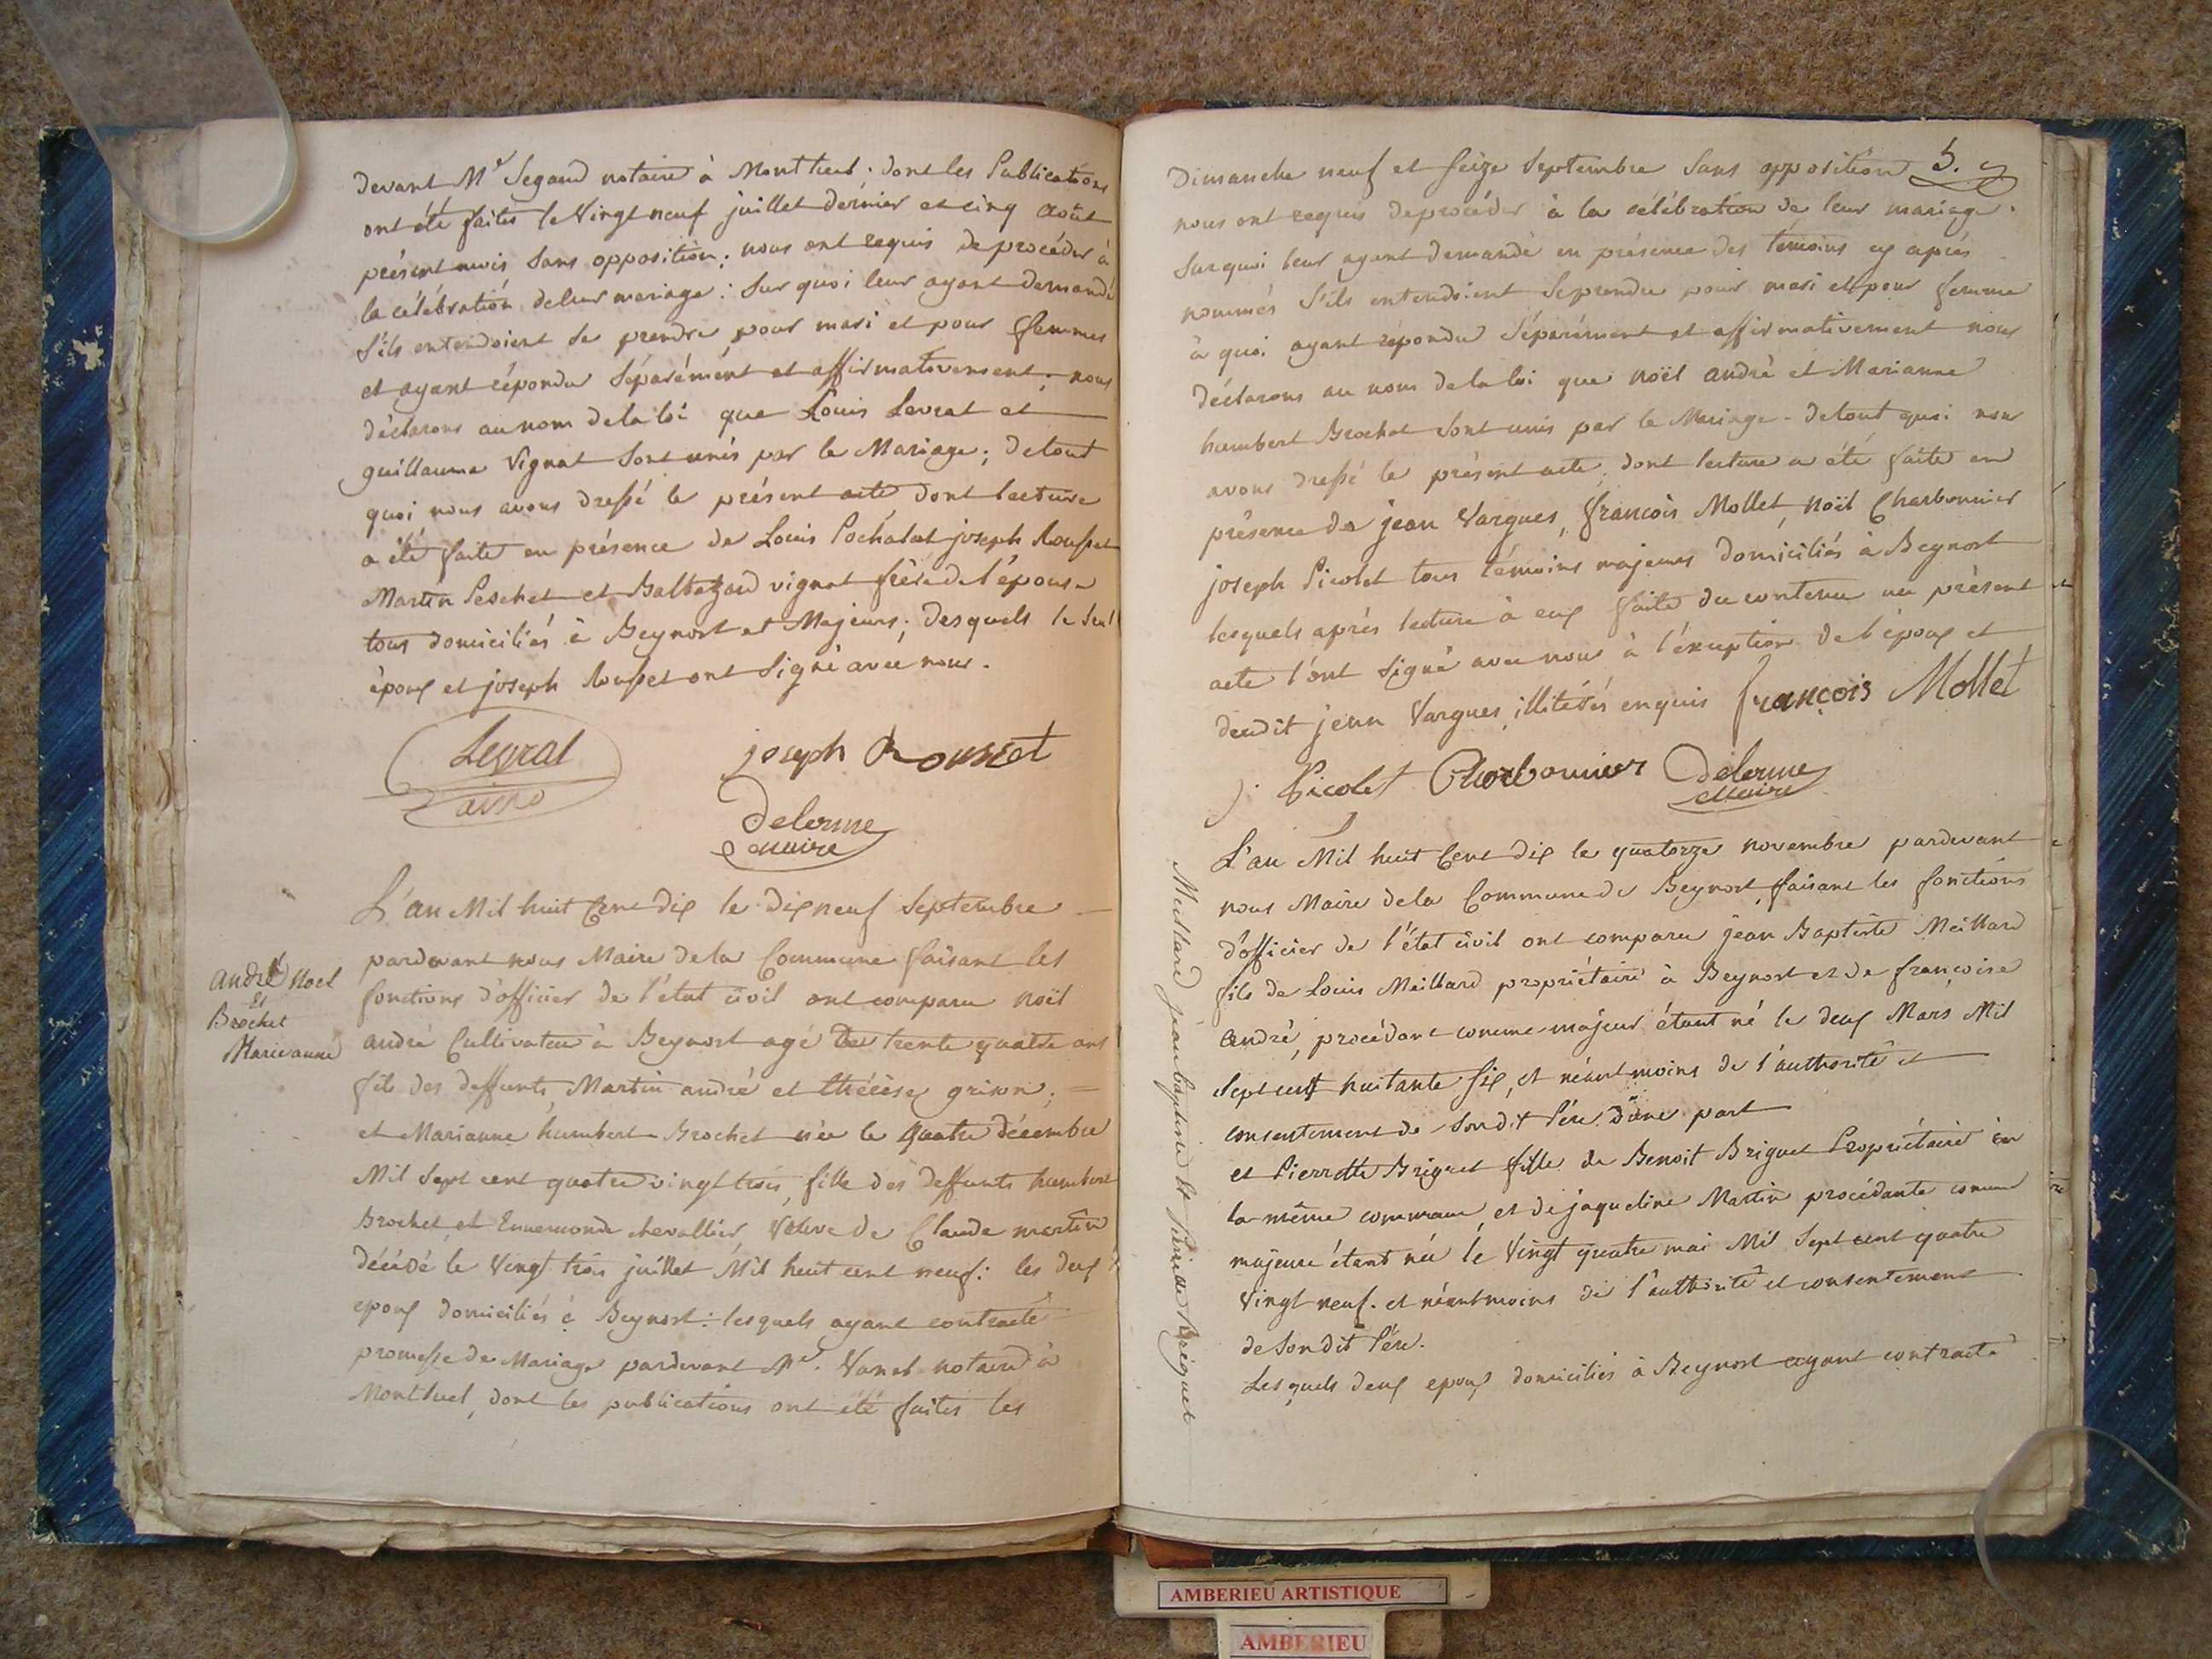 devant Me Segaud notaire à Montluel. dont les Publications
ont été faites le Vingt neuf juillet dernier et cinq août
présent mois sans opposition; nous ont requis de procéder à
la célébration de leur mariage: sur quoi leur ayant demandé
s'ils entendoient se prendre pour mari et pour femmes
et ayant répondu séparément et affirmativement; nous
déclarons au nom de la loi que Louis Levrat et
guillauma Vignat sont unis par le Mariage; de tout
quoi nous avons dressé le présent acte dont lecture
a été faite en présence de Louis Pochalat joseph Rousset
Martin Peschet et Baltazard vignat frère de l'épouse
tous domiciliés à Beynost et Majeurs; desquels le seul
époux et joseph Rousset ont signé avec nous.
Levrat
joseph Rousset
Delorme
maire
L'an Mil huit Cent dix le dix neuf Septembre
pardevant nous Maire de la Commune faisant les
fonctions d'officier de l'état civil ont comparu noël
andré Cultivateur à Beynost agé de trente quatre ans
fils des deffunts Martin andré et thérèse grison;
et Marianne humbert Brochet née le quatre décembre
Mil Sept cent quatre vingt trois, fille des deffunts humbert
Brochet et Ennemonde chevallier, veuve de Claude martin
décédé le Vingt trois juillet Mil huit cent neuf: les deux
epoux domiciliés à Beynost: lesquels ayant contracté
promesse de Mariage pardevant Me. Vanet notaire à
Montluel, dont les publications ont été faites les
andré Noel
Et
Brochet
Marieanne
Dimanche neuf et seize Septembre sans opposition 5.
nous ont requis de procéder à la célébration de leur mariage.
sur quoi leur ayant demandé en présence des témoins cy après
nommés s'ils entendoient se prendre pour mari et pour femme
à quoi ayant répondu séparément et affirmativement nous
déclarons au nom de la loi que noël andré et Marianne
humbert Brochet sont unis par le Mariage. de tout quoi nous
avons dressé le présent acte, dont lecture a été faite en
présence de jean Vargues, françois Mollet, noël Charbonnier
joseph Picolet tous témoins majeurs domiciliés à Beynost
lesquels après lecture à eux faite du contenu au présent
acte l'ont signé avec nous à l'exception de l'époux et
dudit jean Vargues illitérés enquis françois Mollet
j. Picolet Charbonnier Delorme
maire
L'an Mil huit Cent dix le quatorze novembre pardevant
nous Maire de la Commune de Beynost faisant les fonctions
d'officier de l'état civil ont comparu jean Baptiste Meillard
fils de Louis Meillard propriétaire à Beynost et de françoise
andré, procédant comme majeur étant né le deux Mars Mil
Sept cent huitante six, et néantmoins de l'authorité et
consentement de sondit Père d'une part
et Pierrette Briguet fille de Benoit Briguet Propriétaire en
la même commune et de jaqueline Martin procédante comme
majeure étant née le Vingt quatre mai Mil Sept cent quatre
Vingt neuf. et néantmoins de l'authorité et consentement
de sondit Père.
Lesquels deux epoux domiciliés à Beynost ayant contracté
Meillard jean baptiste et Pierrette Briguet
AMBERIEU ARTISTIQUE
AMBERIEU